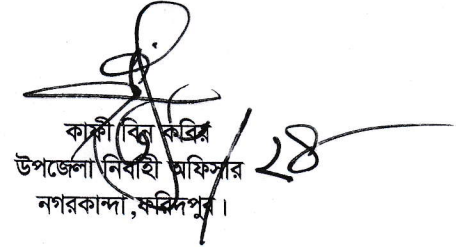 কাফী বিন কবির
উপজেলা নির্বাহী অফিসার
নগরকান্দা ,ফরিদপুর।